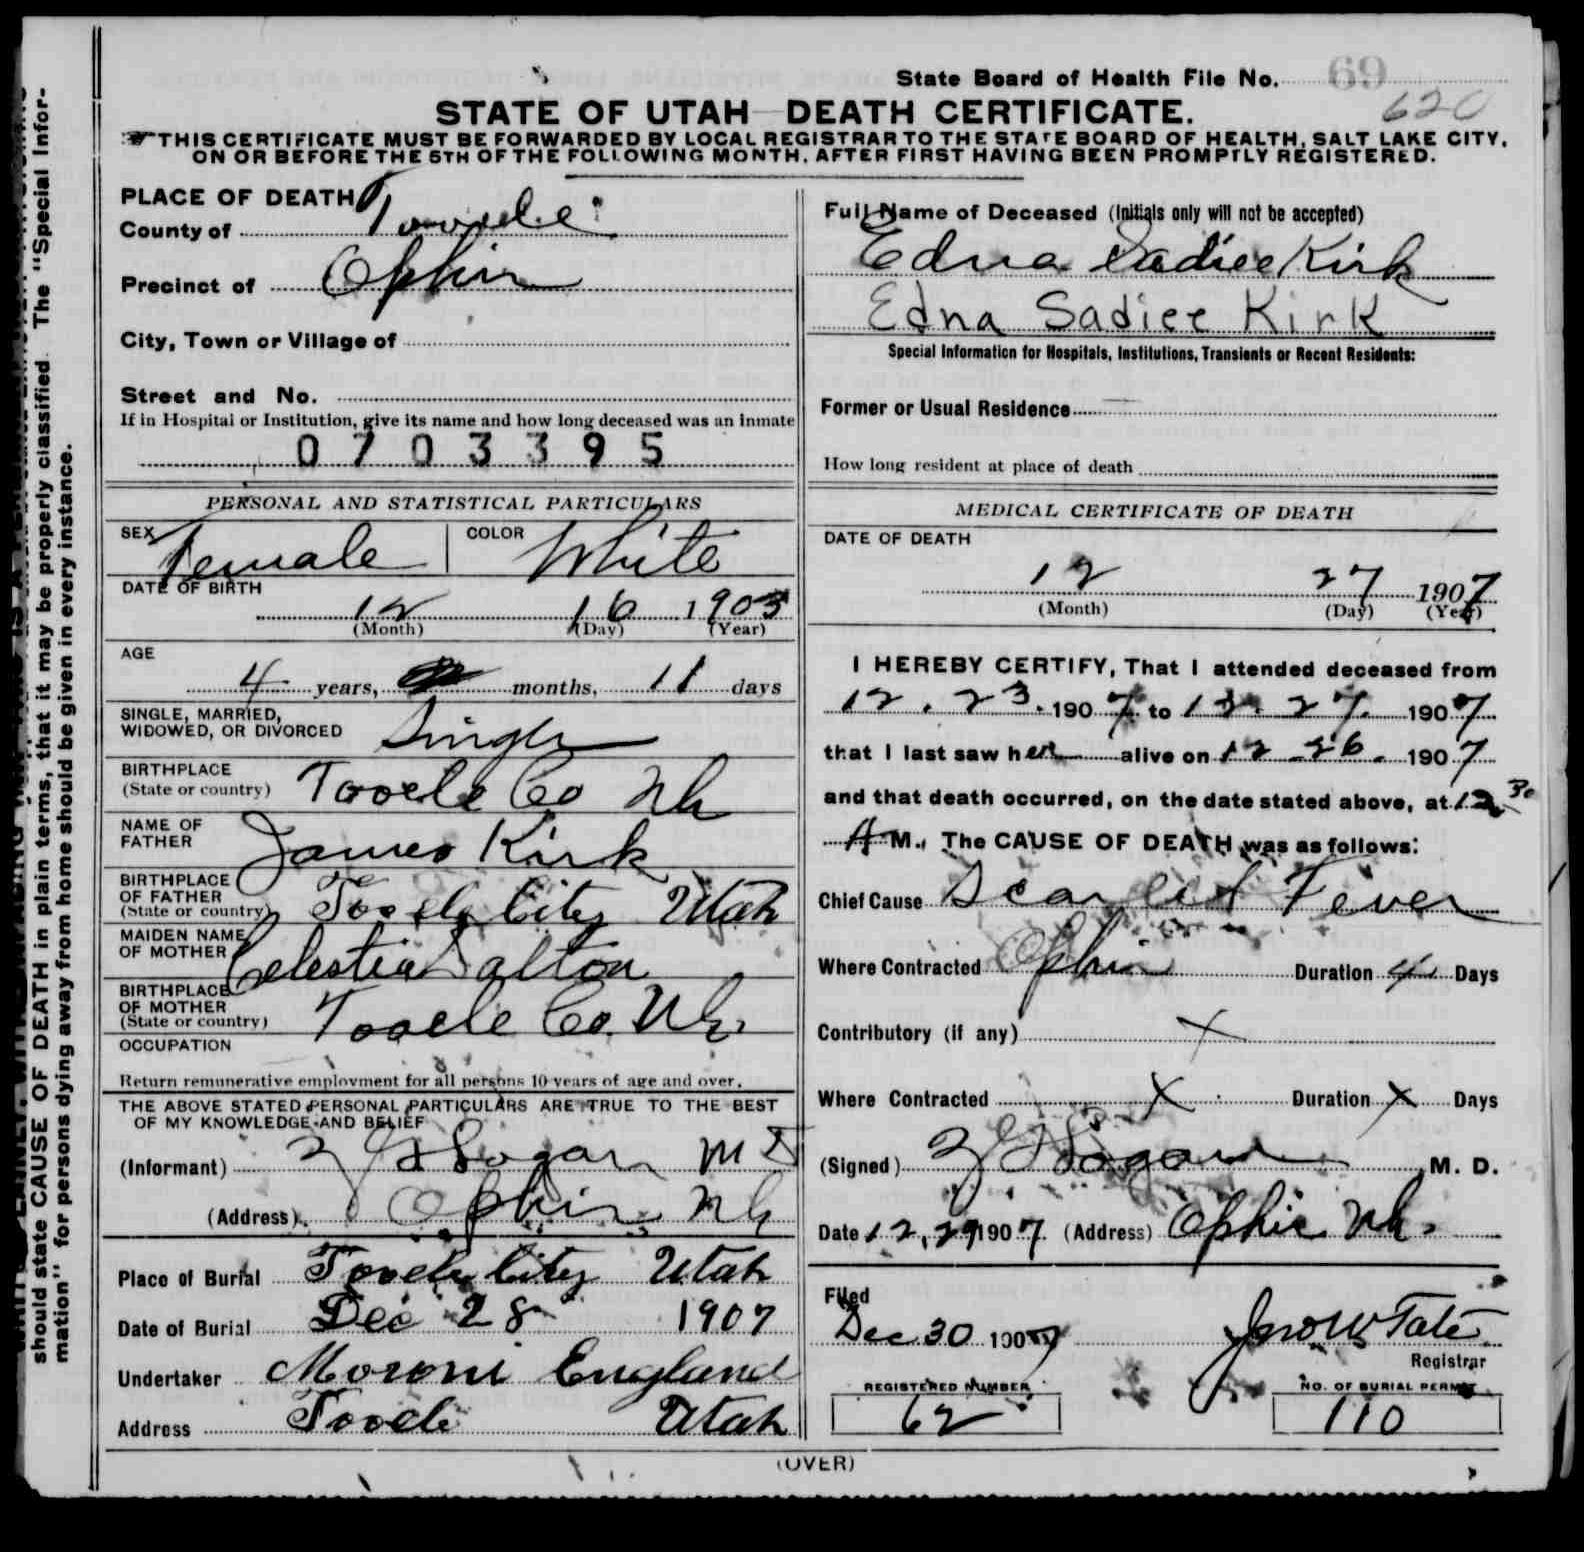 State Board of Health File No. 69
620
STATE OF UTAH DEATH CERTIFICATE.
THIS CERTIFICATE MUST BE FORWARDED BY LOCAL REGISTRAR TO THE STATE BOARD OF HEALTH, SALT LAKE CITY,
ON OR BEFORE THE 5TH OF THE FOLLOWING MONTH, AFTER FIRST HAVING BEEN PROMPTLY REGISTERED.
should state CAUSE OF DEATH in plain terms, that it may be properly classified. The "Special Infor-
mation" for persons dying away from home should be given in every instance.
PLACE OF DEATH
County of Tooele
Precinct of Ophir
City, Town or Village of
Street and No.
If in Hospital or Institution, give its name and how long deceased was an inmate
0703395
PERSONAL AND STATISTICAL PARTICULARS
SEX Female COLOR White
DATE OF BIRTH
12 16 1903
(Month) (Day) (Year)
AGE
4 years, months, 11 days
SINGLE, MARRIED,
WIDOWED, OR DIVORCED Single
BIRTHPLACE
(State or country) Tooele Co Uh
NAME OF
FATHER James Kirk
BIRTHPLACE
OF FATHER
(State or country) Tooele City Utah
MAIDEN NAME
OF MOTHER Celestia Dalton
BIRTHPLACE
OF MOTHER
(State or country) Tooele Co. Uh.
OCCUPATION
Return remunerative employment for all persons 10 years of age and over.
THE ABOVE STATED PERSONAL PARTICULARS ARE TRUE TO THE BEST
OF MY KNOWLEDGE AND BELIEF
(Informant) M D
(Address) Ophir Uh
Place of Burial Tooele City Utah
Date of Burial Dec 28 1907
Undertaker Moroni England
Address Tooele Utah
Full Name of Deceased (Initials only will not be accepted)
Edna Sadiee Kirk
Edna Sadiee Kirk
Special Information for Hospitals, Institutions, Transients or Recent Residents:
Former or Usual Residence
How long resident at place of death
MEDICAL CERTIFICATE OF DEATH
DATE OF DEATH
12 27 1907
(Month) (Day) (Year)
I HEREBY CERTIFY, That I attended deceased from
12. 23. 1907 to 12. 27. 1907
that I last saw her alive on 12 26. 1907
and that death occurred, on the date stated above, at 12 30
A M., The CAUSE OF DEATH was as follows:
Chief Cause Scarlet Fever
Where Contracted Ophir Duration 4 Days
Contributory (if any) X
Where Contracted X Duration X Days
(Signed) M. D.
Date 12, 29 1907. (Address) Ophir Uh.
Filed
Dec 30 1907 Jno W Tate
Registrar
REGISTERED NUMBER
62
NO. OF BURIAL PERMIT
110
(OVER)